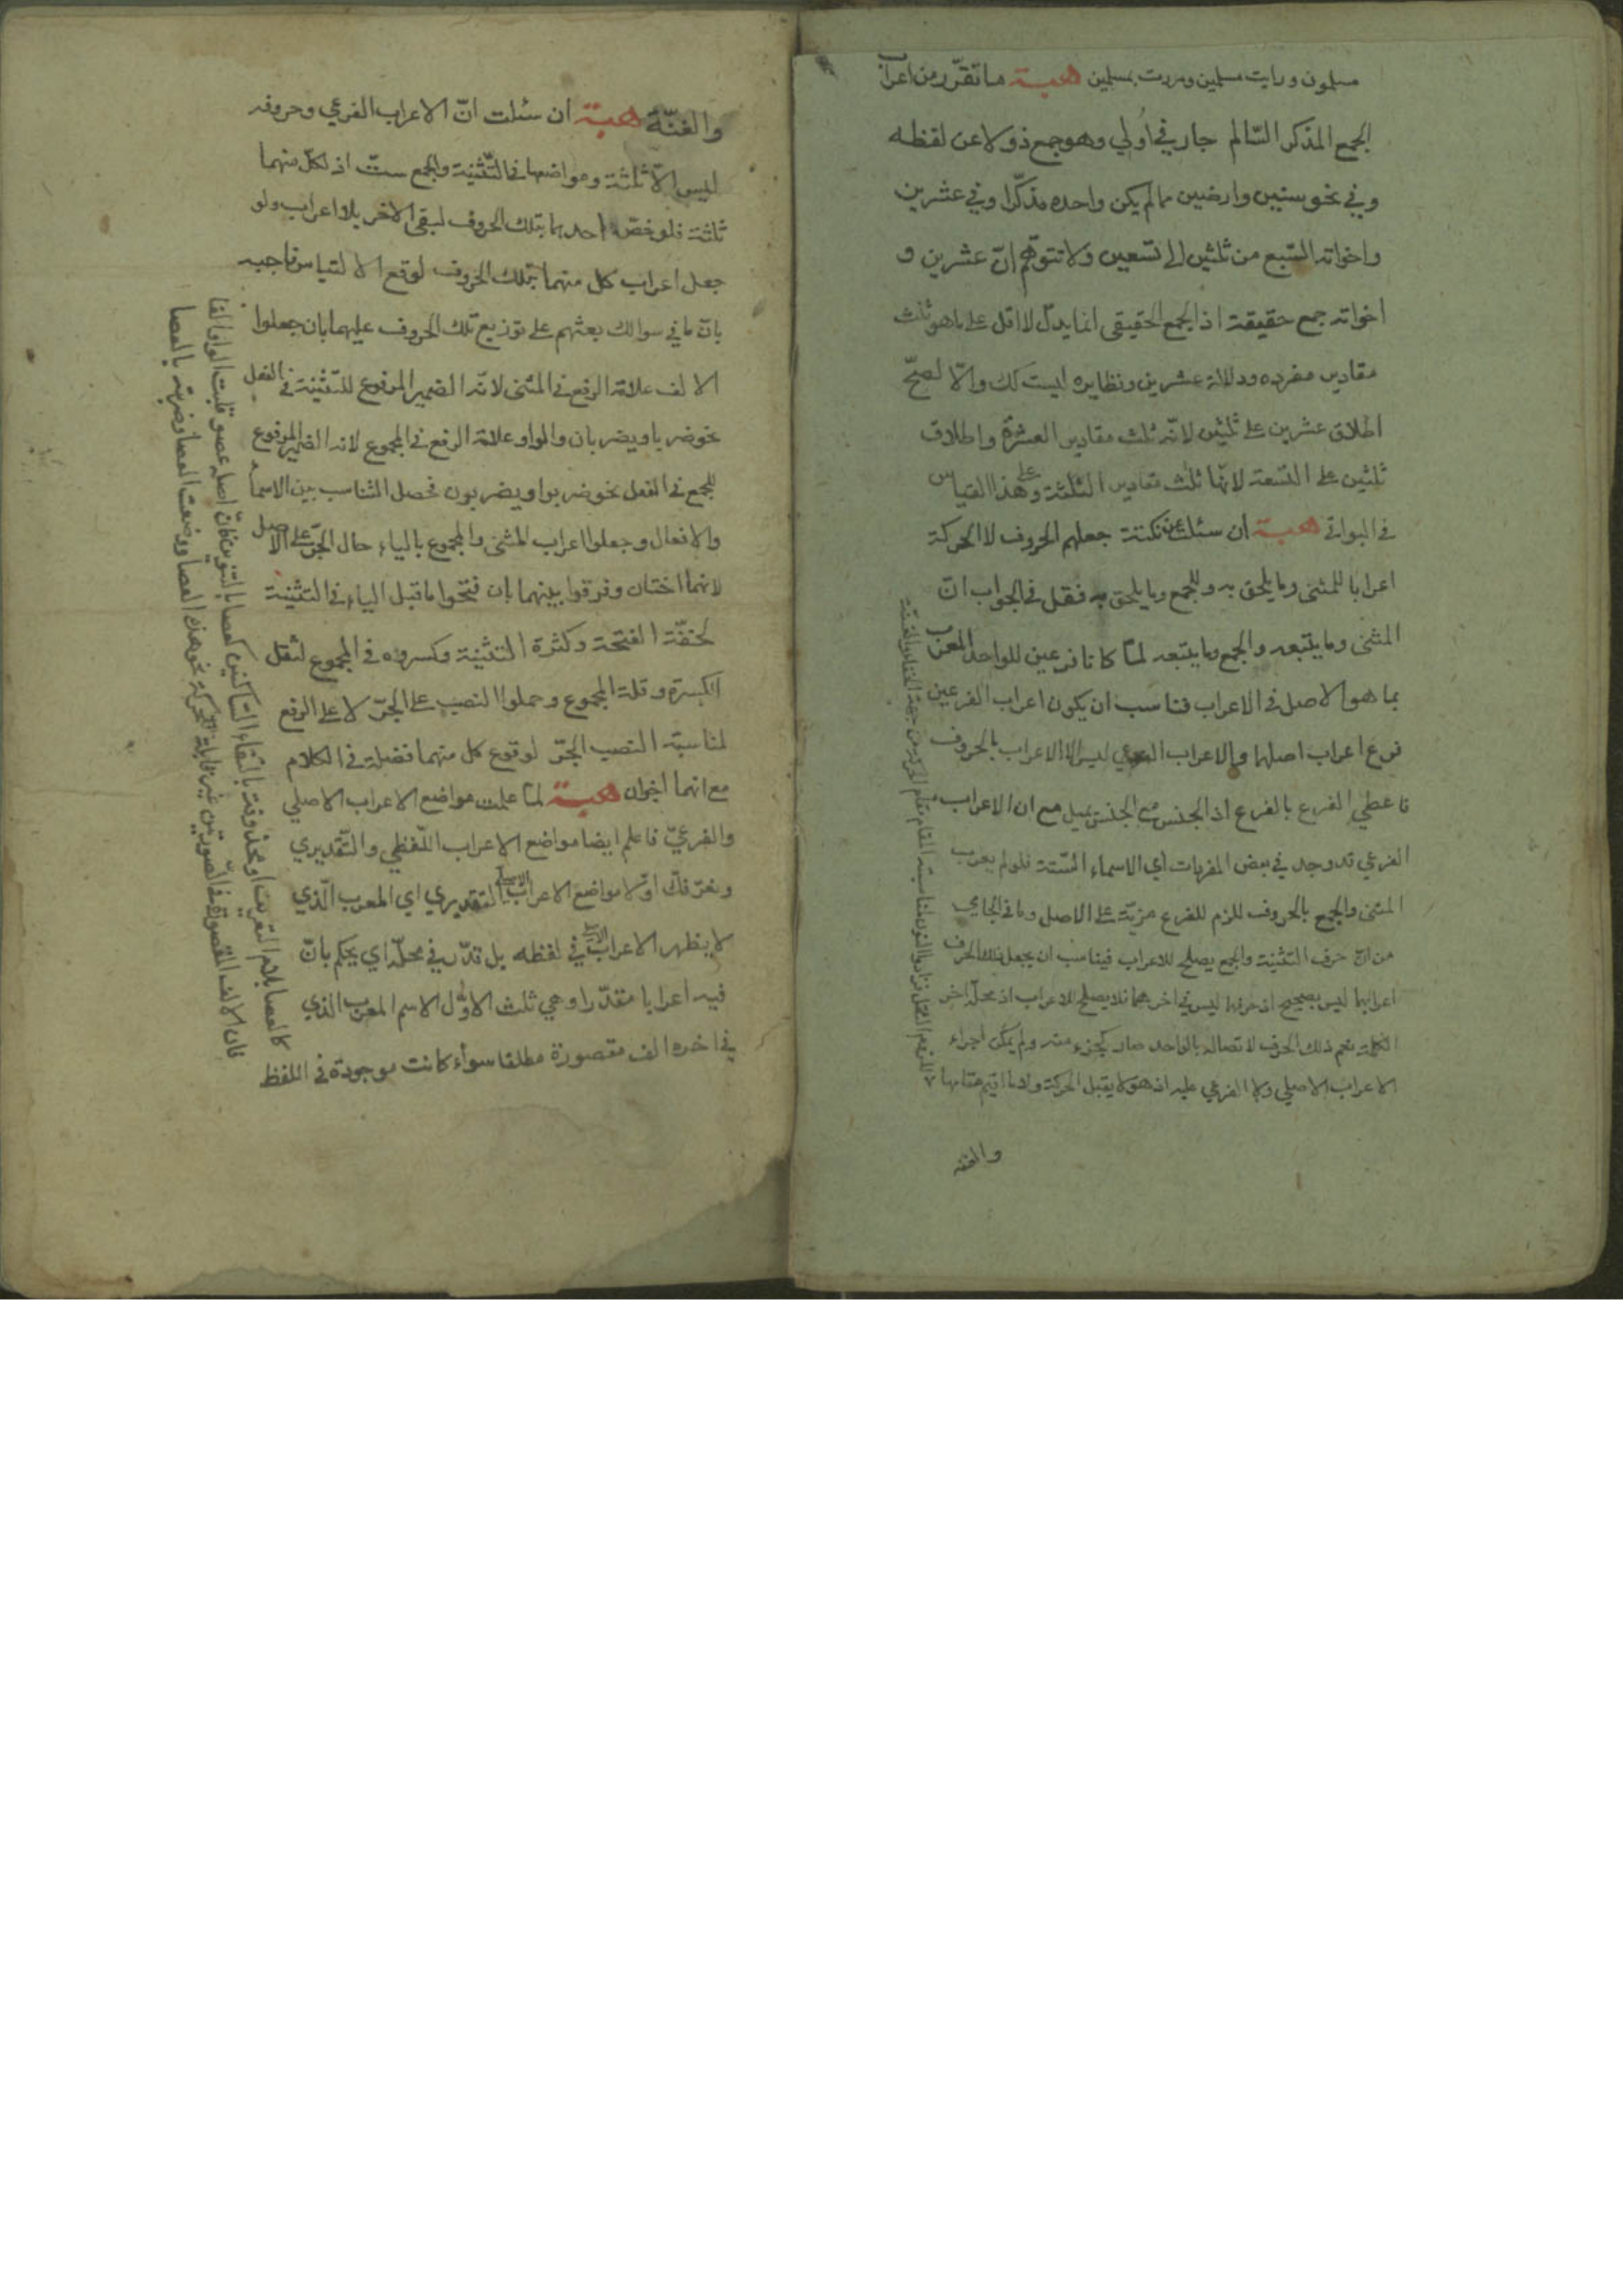 مسلمون ورايت مسلمين ومررت بمسلمين هبة ما تقرّر من اعراب
الجمع المذكر السّالم جار في اولي وهو جمع ذو لا عن لفظه
وفي نحو سنين وارضين مما لم يكن واحده مذكّرا وفي عشرين
واخواته السّبع من ثلثين الى تسعين ولا تتوهّم انّ عشرين و
اخواته جمع حقيقة اذ الجمع الحقيقي انما يدلّ لا اقل على ما هو ثلث
مقادير مفرده ودلالة عشرين ونظايره ليست كك والّا لصحّ
اطلاق عشرين على ثلثين لانّه ثلث مقادير العشرة واطلاق
ثلثين على التسعة لانها ثلث مقادير الثلثة وعلى هذا القياس
في البواقي هبة ان سئلت عن نكتة جعلهم الحروف لا الحركة
اعرابا للمثنى وما يلحق به وللجمع وما يلحق به فقل في الجواب انّ
المثنى وما يتبعه والجمع وما يتبعه لمّا كانا فرعين للواحد المعرب
بما هو الاصل في الاعراب فناسب ان يكون اعراب الفرعين
فرع اعراب اصلها والاعراب الفرعي ليس الا الاعراب بالحروف
فاعطي الفرع بالفرع اذ الجنس مع الجنس يميل مع ان الاعراب
الفرعي قد وجد في بعض المفردات اي الاسماء الستة فلو لم يعرب
المثنى والجمع بالحروف للزم للفرع مزيّة على الاصل وما في الجامي
من انّ حرف التثنية والجمع يصلح للاعراب فيناسب ان يجعل ذلك الحرف
اعرابهما ليس بصحيح اذ حرفهما ليس في اخرهما فلا يصلح للاعراب اذ محلّه اخر
الكلمة نعم ذلك الحرف لاتصاله بالواحد صار كجزء منه ولم يمكن اجراء
الاعراب الاصلي ولا الفرعي عليه اذ هو لا يقبل الحركة
والغنّة
والغنّة هبة ان سئلت انّ الاعراب الفرعي وحروفه
ليس الّا ثلثة ومواضعها في التّثنية والجمع ستّ اذ لكلّ منهما
ثلثة فلو خصّ احدهما بتلك الحروف لبقي الاخر بلا اعراب ولو
جعل اعراب كل منهما بتلك الحروف لوقع الالتباس فاجيب
بان ما في سوالك بعثهم على توزيع تلك الحروف عليهما بان جعلوا
الالف علامة الرفع في المثنى لانّه الضمير المرفوع للتّثنية في الفعل
نحو ضربا ويضربان والواو علامة الرفع في المجموع لانه الضمير المرفوع
للجمع في الفعل نحو ضربوا ويضربون فحصل التناسب بين الاسماء
والافعال وجعلوا اعراب المثنى والمجموع بالياء حال الجرّ على الاصل
لانهما اختان وفرقوا بينهما بان فتحوا ما قبل الياء في التثنية
لخفّة الفتحة وكثرة التثنية وكسروه في المجموع لثقل
الكسرة وقلة المجموع وحملوا النصب على الجرّ لا على الرفع
لمناسبة النصب الجرّ لوقوع كل منهما فضلة في الكلام
مع انهما اخوان هبة لمّا علمت مواضع الاعراب الاصلي
والفرعيّ فاعلم ايضا مواضع الاعراب اللّفظي والتّقديري
ونعرّفك اوّلا مواضع الاعراب الاصلي التقديري اي المعرب الّذي
لا يظهر الاعراب الاصلي في لفظه بل قدّر في محلّه اي يحكم بانّ
فيه اعرابا مقدّرا وهي ثلث الاوّل الاسم المعرب الذي
في اخره الف مقصورة مطلقا سواء كانت موجودة في اللفظ
كالعصا بلام التعريف او محذوفة بالتقاء السّاكنين كعصا بالتنوين فانّ اصله عصو قلبت الواو الفا
فان الالف المقصورة في الصّورتين غير قابلة للحركة نحو هذه العصا ورفعت العصا وضربت بالعصا